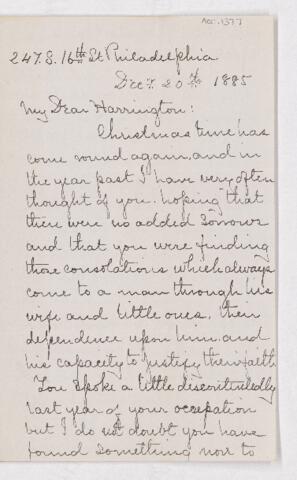 Acc. 1377
247 S. 16th St Philadelphia
Decr. 20th 1885
My Dear Harrington:
Christmas time has
come round again, and in
the year past I have very often
thought of you. hoping that
there were no added sorrows
and that you were finding
those consolations which always
come to a man through his
wife and little ones, their
dependence upon him, and
his capacity to justify their faith
You spoke a little discontentedly
last year of your occupation
but I do not doubt you have
found something now to